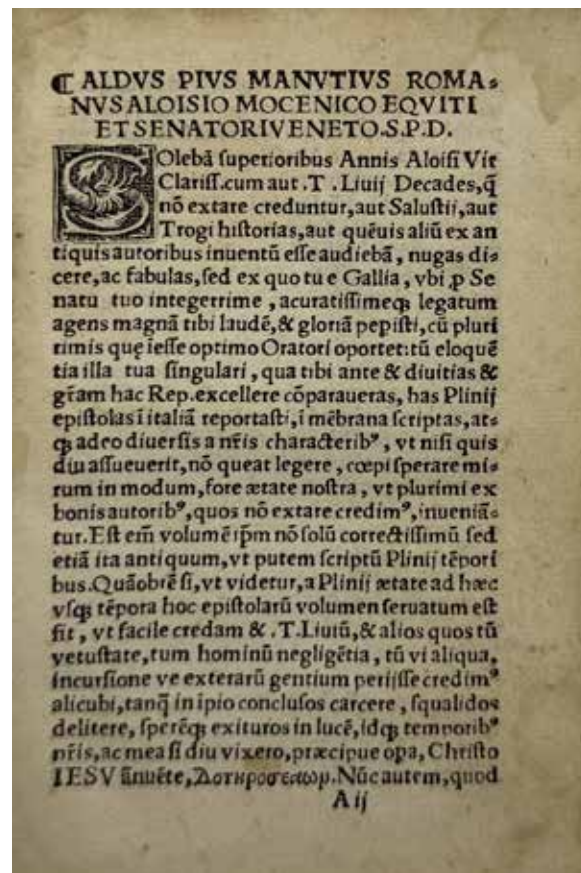 ☾ ALDVS PIVS MANVTIVS ROMA⸗
NVS ALOISIO MOCENICO EQVITI
ET SENATORI VENETO.S.P.D.
SOlebā superioribus Annis Aloisi Vir
Clariss.cum aut .T .Liuij Decades,q̄
nō extare creduntur,aut Salustij,aut
Trogi historias,aut quēuis aliū ex an
tiquis autoribus inuentū esse audiebā, nugas di⸗
cere,ac fabulas,sed ex quo tu e Gallia, vbi ꝓ Se
natu tuo integerrime, acuratissimeqꝫ legatum
agens magnā tibi laudē,& gloriā pepisti,cū pluri
rimis quę īesse optimo Oratori oportet:tū eloquē
tia illa tua singulari, qua tibi ante & diuitias &
gr̄am hac Rep.excellere cōparaueras, has Plinij
epistolas ī italiā reportasti,ī mēbrana scriptas,at⸗
qꝫ adeo diuersis a nr̄is characteribꝰ, vt nisi quis
diu assueuerit,nō queat legere, cœpi sperare mi⸗
rum in modum,fore ætate nostra, vt plurimi ex
bonis autoribꝰ,quos nō extare credimꝰ,inueniā⸗
tur.Est em̄ volumē ip̄m nō solū correctissimū sed
etiā ita antiquum,vt putem scriptū Plinij tēpori
bus.Quāobrē si,vt videtur,a Plinij ætate ad hæc
vsqꝫ tēpora hoc epistolarū volumen seruatum est
fit, vt facile credam & .T.Liuiū,& alios quos tū
vetustate,tum hominū negligētia, tū vi aliqua,
incursione ve exterarū gentium perijsse credimꝰ
alicubi,tanq̄ in ip̄io conclusos carcere, squalidos
delitere, sperēqꝫ exituros in lucē,idqꝫ temporibꝰ
nr̄is,ac mea si diu vixero,præcipue opa, Christo
IESV ānuēte, .Nūc autem,quod
A ij